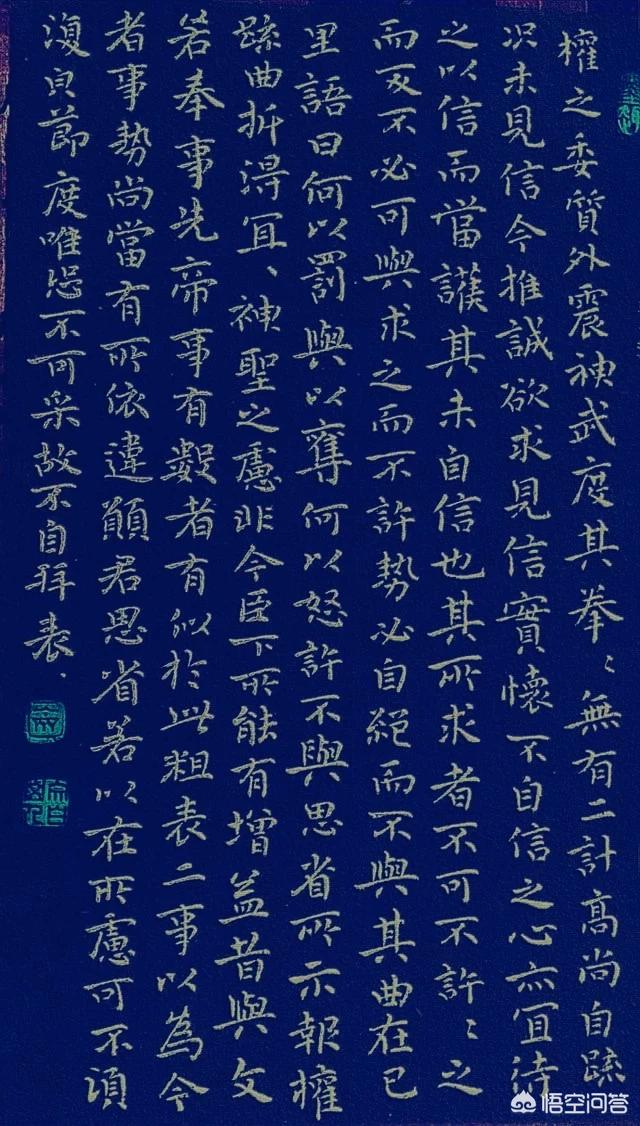 權之委質外震神武度其拳〻無有二計高尚自疏
況未見信今推誠欲求見信實懷不自信之心亦宜待
之以信而當護其未自信也其所求者不可不許〻之
而反不必可與求之而不許勢必自絕而不與其曲在己
里語曰何以罰與以奪何以怒許不與思省所示報權
疏曲折得宜、神聖之慮非今臣下所能有增益昔與文
若奉事先帝事有數者有似於此粗表二事以為今
者事勢尚當有所依違願君思省若以在所慮可不須
復貝節度唯恐不可采故不自拜表、
悟空问答